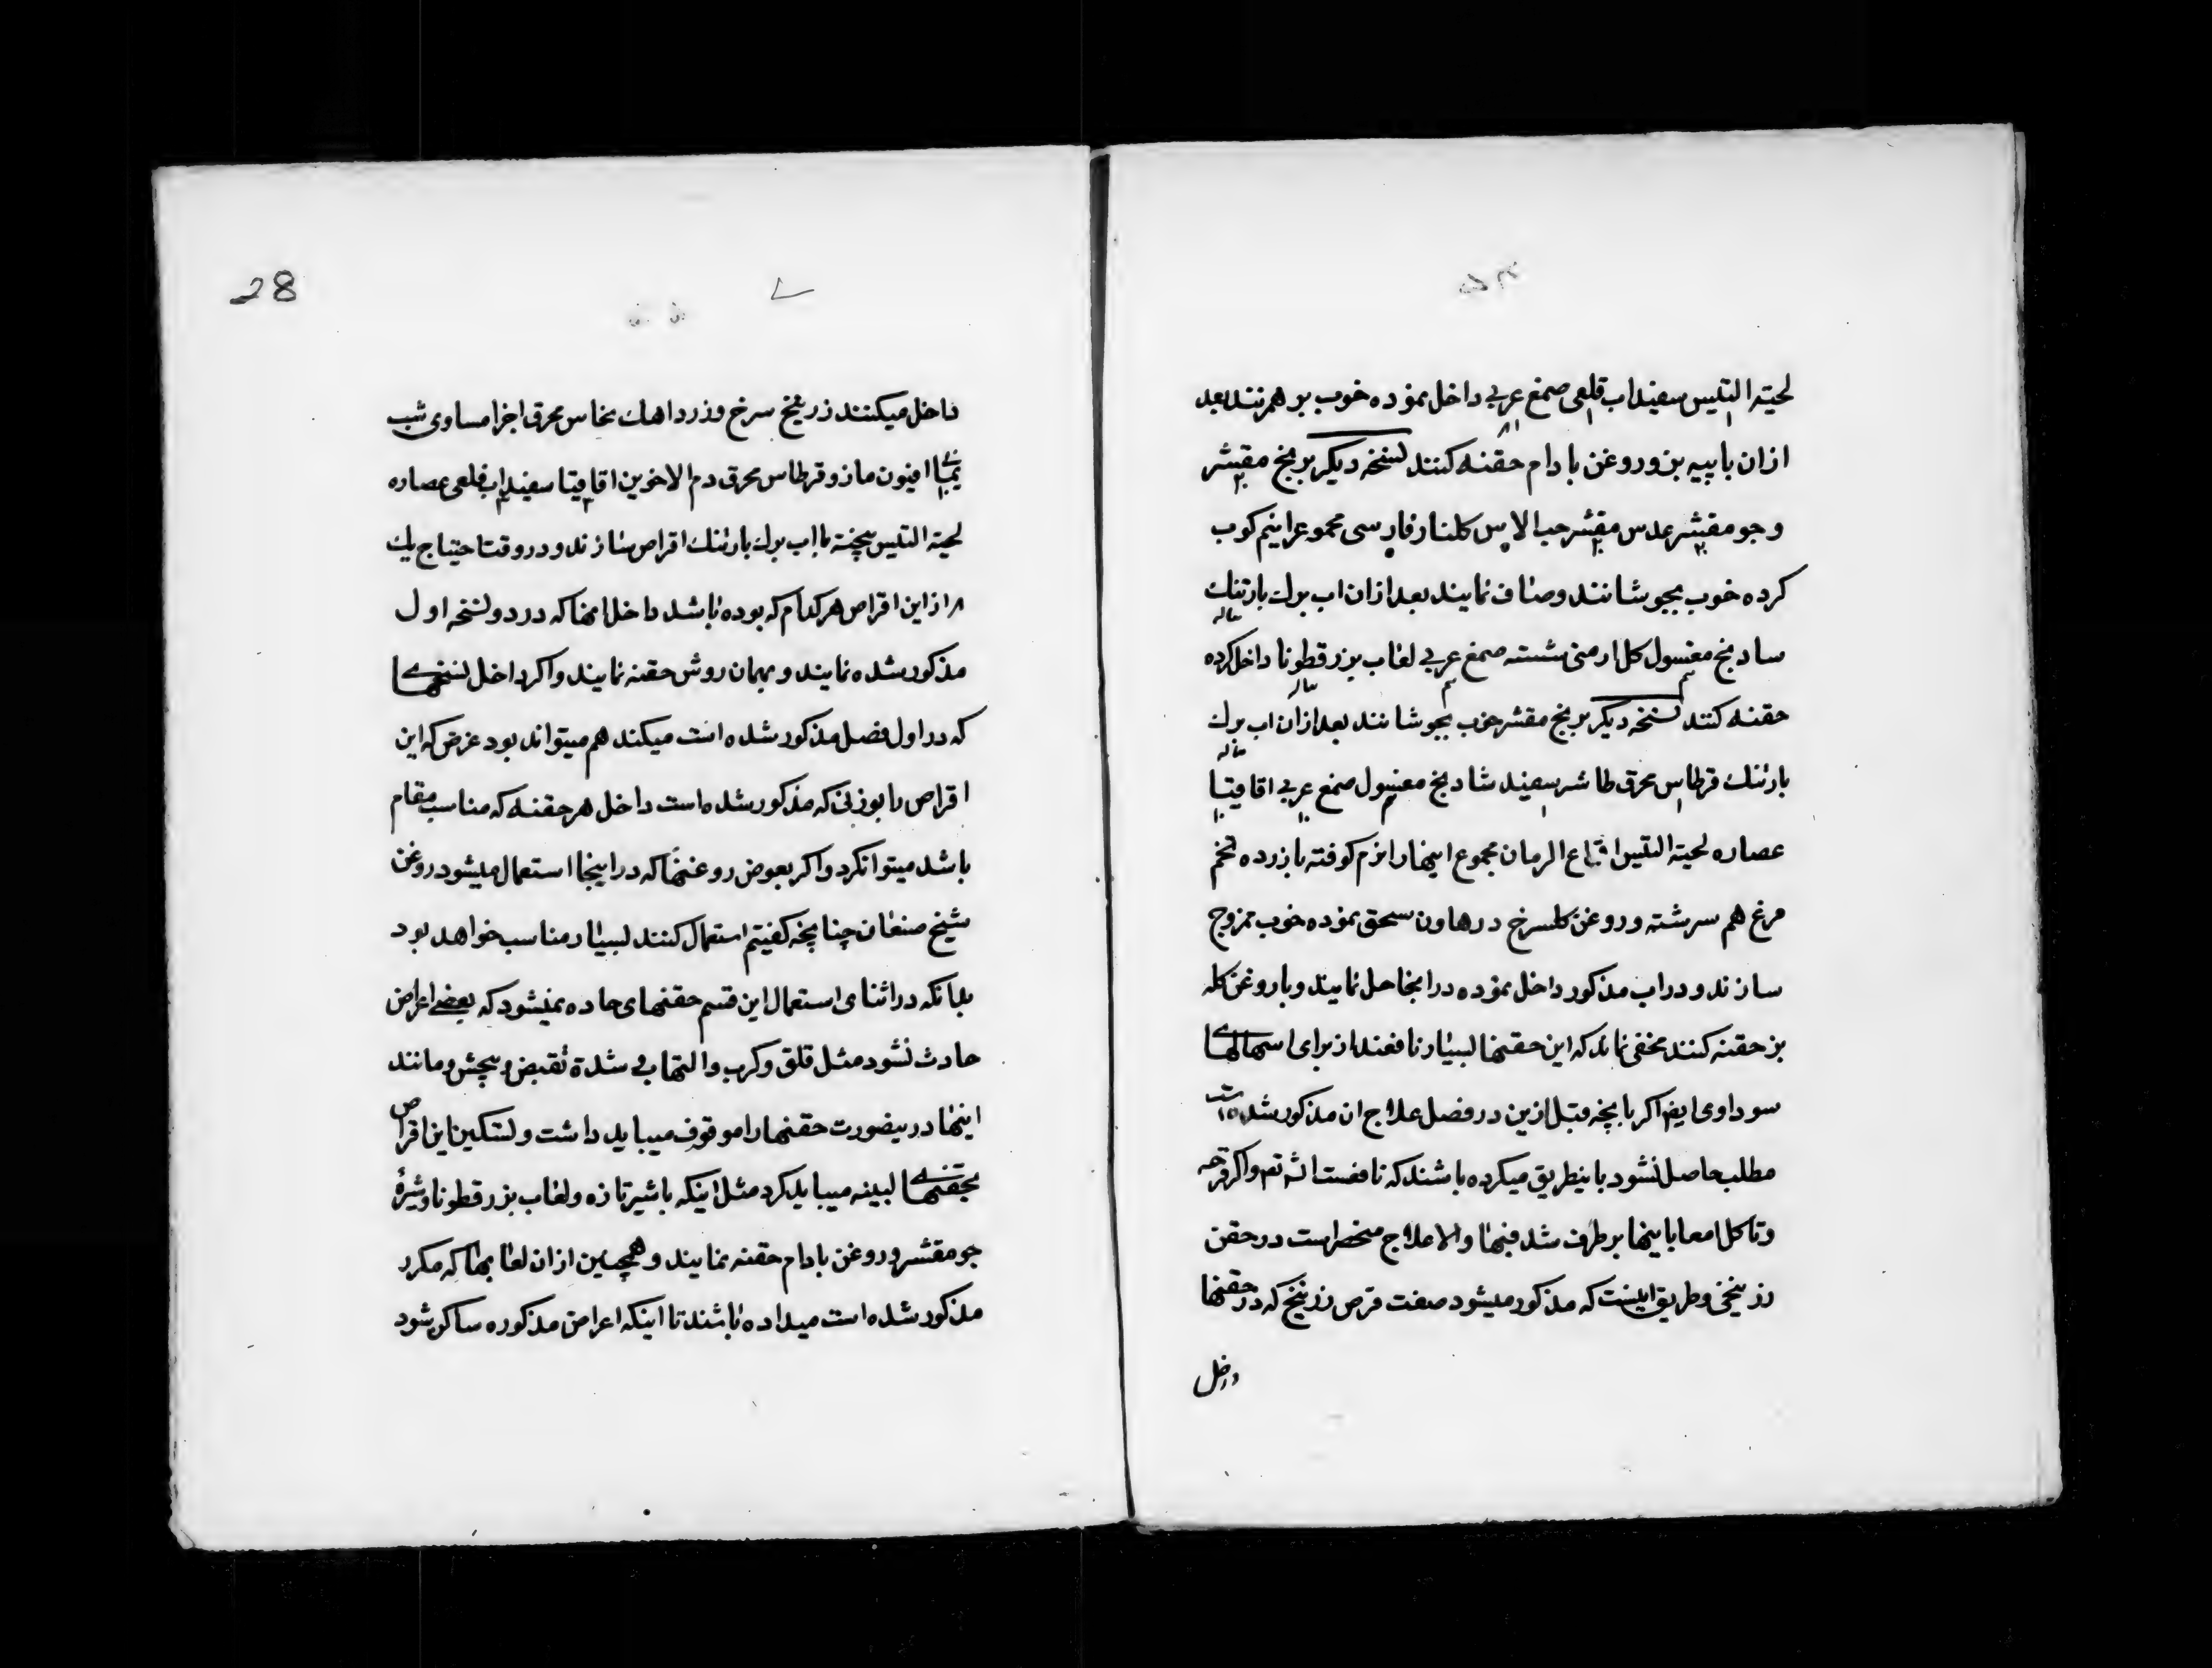 لحیة التیس سفیداب قلعی صمغ عربی داخل نموده خوب بر هم زنند بعد
ازان با پیه بز و روغن بادام حقنه کنند نسخه دیکر برنج مقشر
و جو مقشر عدس مقشر حب الاس کلنار فارسی مجموع را نیم کوب
کرده خوب بجوشانند و صاف نمایند بعد ازان اب برک بارتنك
سادنج مغسول کل ارمنی شسته صمغ عربی لعاب بزر قطونا داخل کرده
حقنه کنند نسخه دیکر برنج مقشر خوب بجوشانند بعد ازان اب برك
بارتنك قرطاس محرق طاشر سفید شادنج مغسول صمغ عربی اقاقیا
عصاره لحیة التیس اقماع الرمان مجموع اینها را نرم کوفته با زرده تخم
مرغ هم سرشته و روغن کلسرخ در هاون سحق نموده خوب ممزوج
سازند و در اب مذکور داخل نموده در انجا حل نمایند و با روغن کله
بز حقنه کنند مخفی نماند که این حقنها بسیار نافعند از برای اسهالهای
سوداوی ایضا اکر بانچه قبل ازین در فصل علاج ان مذکور شده است
مطلب حاصل نشود باینطریق میکرده باشند که نافعست و اکر قرحه
و تاکل امعا باینها بر طرف شد فبها والا علاج منحصر است در حقن
زرنیخی و طریق اینست که مذکور میشود صفت قرص زرنیخ که در حقنها
داخل
28
داخل میکنند زرنیخ سرخ و زرد اهك نحاس محرق اجزا مساوی شب
یمانی افیون مازو قرطاس محرق دم الاخوین اقاقیا سفیداب قلعی عصاره
لحیة التیس پخته با اب برك بارتنك اقراص سازند و در وقت احتیاج یك
از این اقراص هر کدام که بوده باشد داخل انها که در دو نسخه اول
مذکور شده نمایند و بهمان روش حقنه نمایند و اکر داخل نسخهای
که در اول فصل مذکور شده است میکند هم میتواند بود غرض که این
اقراص با بوزنی که مذکور شده است داخل هر حقنه که مناسب مقام
باشد میتوانکرد و اکر بعوض روغنها که در اینجا استعمال میشود روغن
شیخ صنعان چنانچه کفتیم استعمال کنند بسیار مناسب خواهد بود
بدانکه در اثنای استعمال این قسم حقنهای حاده نمیشود که بعضی اعراض
حادث نشود مثل قلق و کرب و التهاب و شدة تقبض و پیچش و مانند
اینها در ینصورت حقنها را موقوف میباید داشت و تسکین این اقراص
بحقنهای لینه میباید کرد مثل اینکه با شیر تازه و لعاب بزر قطونا و شیرهٔ
جو مقشر و روغن بادام حقنه نمایند و همچنین ازان لعابها که مکرر
مذکور شده است میداده باشند تا اینکه اعراض مذکوره ساکن شود